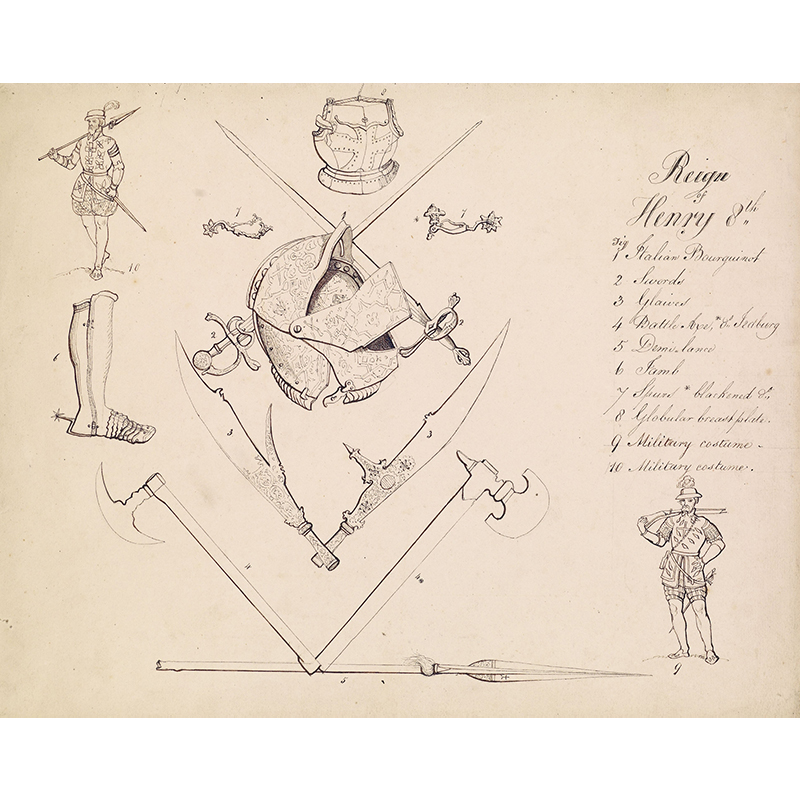 Reign
of
Henry 8th
Fig
1 Italian Bourguinot
2 Swords
3 Glaives
4 Battle Axe,* & Jedburg
5 Demi lance
6 Jamb
7 Spurs * blackened &c
8 Globular breast plate.
9 Military costume -
10 Military costume.
8
7
7
1
2
2
10
6
3
3
4
4*
5
9